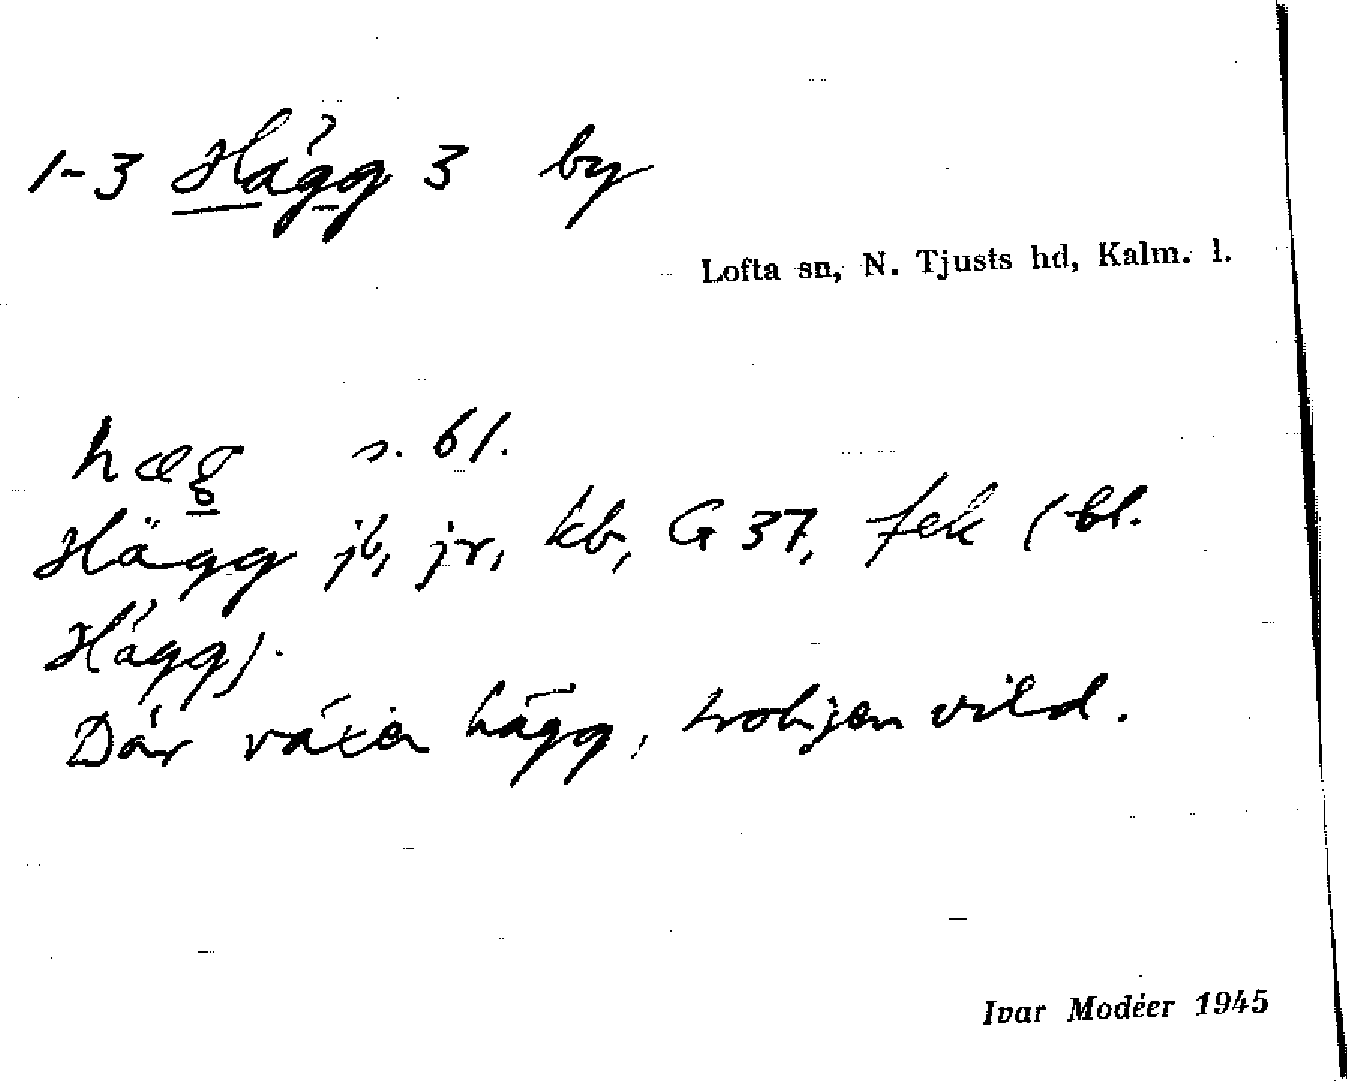 1-3 Hägg 3 by
Lofta sn, N. Tjusts hd, Kalm. l.
hæg s. 61.
Hägg jb, jr, kb, G 37, fek (bl.
Hägg).
Där växer hägg, troligen vild.
Ivar Modéer 1945